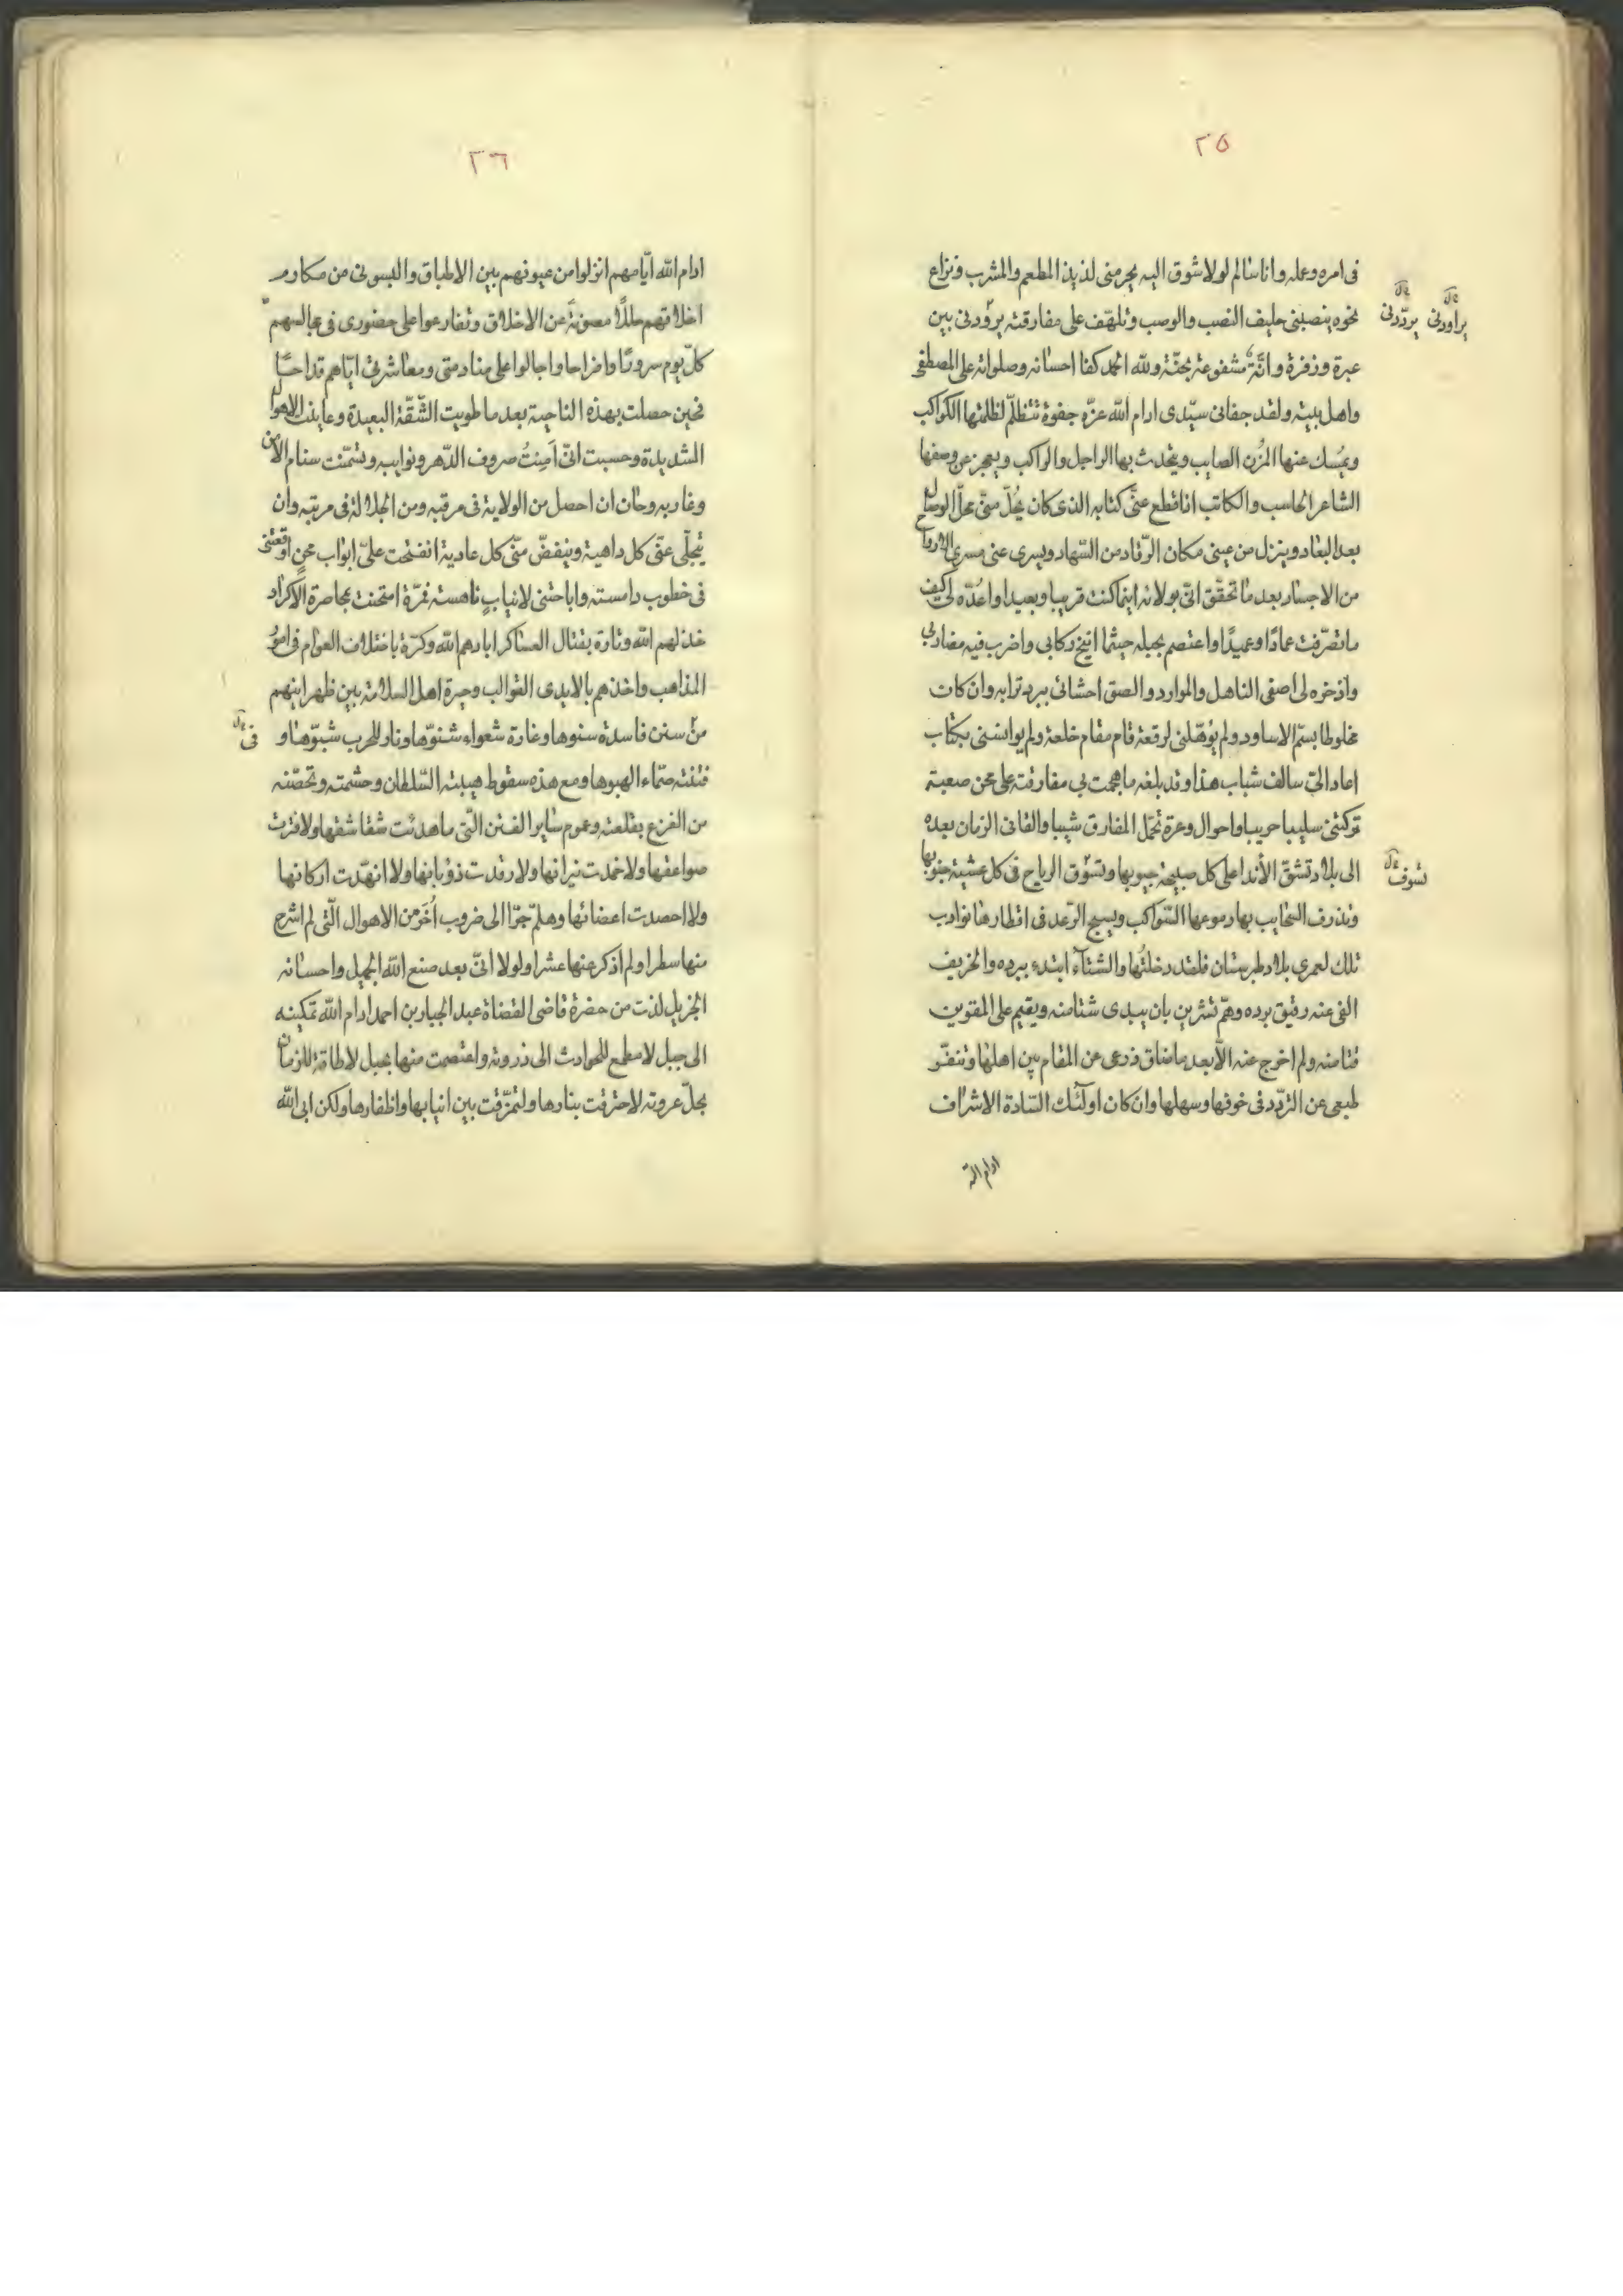 ٢٥
فى امره وعمله وانا سالم لولا شوق اليه يحرمنى لذيذ المطعم والمشرب ونزاع
نحوه ينصبنى حليف النصب والوصب وتلهّف على مفارقته يردّدنى بين
يردّدنى يراودنى
عبرة وزفرة وانّة مشفوعة بحنّة ولله الحمد كفا احسانه وصلواته على المصطفى
واهل بيته ولقد جفانى سيّدى ادام الله عزّه جفوة تتظلّم لظلمتها الكواكب
ويمسك عنها المزن الصايب ويتحدث بها الراجل والراكب ويعجز عن وصفها
الشاعر الحاسب والكاتب انا قطع عنّى كتابه الذى كان يحُلّ منّى محلّ الوصال
بعد البعاد وينزل من عينى مكان الرّقاد من السّهاد ويسرى عنى مسرى الارواح
من الاجساد بعد ما تحقّق انّى بولائه اينما كنت قريبا وبعيدا واعُدّه لى كيف
ما تصرّفت عمادًا وعميدًا واعتصم بحبله حيثما انيخ ركابى واضرب فيه مضاربى
واذخره لى اصفى المناهل والموارد والصق احشائى ببرد ترابه وان كان
مخلوطا بسمّ الاساود ولم يُؤهّلنى لرقعة قام مقام خلعة ولم يوانسنى بكتاب
اعاد الىّ سالف شباب هذا وقد بلغه ما هجمت بى مفارقته على محن صعبة
تركتنى سليبا حريبا واحوال وعرة تحمل المفارق شيبا والقانى الزمان بعده
الى بلاد تشقق الأندا على كل صبيحة جيوبها وتسوّق الرياح فى كل عشيّة جنوبها
تسوف
وتذرف السحايب بها دموعها السّواكب ويسبح الرّعد فى اقطارها نوادب
تلك لعمرى بلاد طبرستان فلقد دخلتُها والشتاء ابتدء ببرده والخريف
القى عنه رقيق برده وهمّ تشرين بان يبدى شتامته ويقيم على المقوين
قتامته ولم اخرج عنه الّا بعد ما ضاق ذرعى عن المقام بين اهلها وتنفّر
طبعى عن التردّد فى خوفها وسهلها وان كان اولئك السّادة الاشراف
ادام الله
٢٦
ادام الله ايّامهم انزلوا من عيونهم بين الاطباق والبسونى من مكارم
اخلاقهم حللًا مصونة عن الاخلاق وتقارعوا على حضورى فى مجالسهم
كلّ يوم سرورًا وافراحا واجالوا على منادمتى ومعاشرتى ايّاهم قداحًا
فحين حصلت بهذه الناحية بعد ما طويت الشّقّة البعيدة وعاينت الاهوال
الشديدة وحسبت انّى اَمِنتُ صروف الدّهر ونوايبه وتسنّمت سنام الأمن
وغاربه وحان ان احصل من الولاية فى مرقبه ومن الجلالة فى مرتبه وان
يتجلّى عنّى كل داهية وينفضّ منّى كل عادية انفتحت علىّ ابواب محنٍ اوقعتنى
فى خطوب دامسة واباحتنى لانيابٍ ناهسة فمرّة امتحنت بمحاصرة الاكراد
خذلهم الله وتارة بقتال العساكر ابادهم الله وكرّة باختلاف العوام فى امور
المذاهب واخذهم بالايدى القوالب وحيرة اهل السلامة بين ظهرانيهم
من سنن فاسدة سنوها وغارة شعواء شنوّها ونار للحرب شبّوها و
فى
فتنة صمّاء الهبوها ومع هذه سقوط هيبة السّلطان وحشمته وتحصّنه
من الفزع بقلعته وعموم ساير الفتن التّى ما هدئت شقاشقها ولا فترت
صواعقها ولا خمدت نيرانها ولا رقدت ذؤبانها ولا انهدّت اركانها
ولا احصدت اعضائها وهلمّ جرّا الى ضروب اُخَر من الاهوال الّتى لم اشرح
منها سطرا ولم اذكر عنها عشرا ولولا انّى بعد صنع الله الجميل واحسانه
الجزيل لذت من حضرة قاضى القضاة عبد الجبار بن احمد ادام الله تمكينه
الى جبل لا مطمع للحوادث الى ذروته واعتصمت منها بحبل لا طاقة للزمان
بحلّ عروته لاحترقت بنارها ولتمزّقت بين انيابها واظفارها ولكن ابى الله